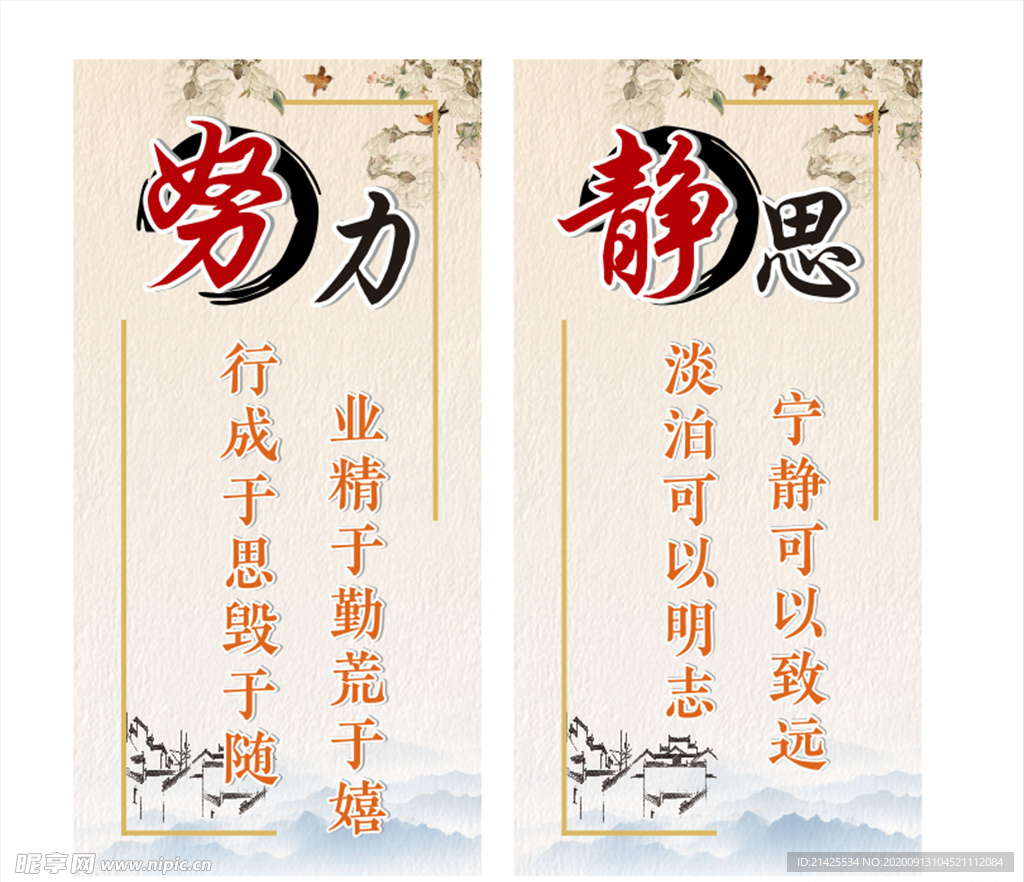 努力
业精于勤荒于嬉
行成于思毁于随
静思
宁静可以致远
淡泊可以明志
昵享网 www.nipic.cn
ID:21425534 NO:20200913104521112084